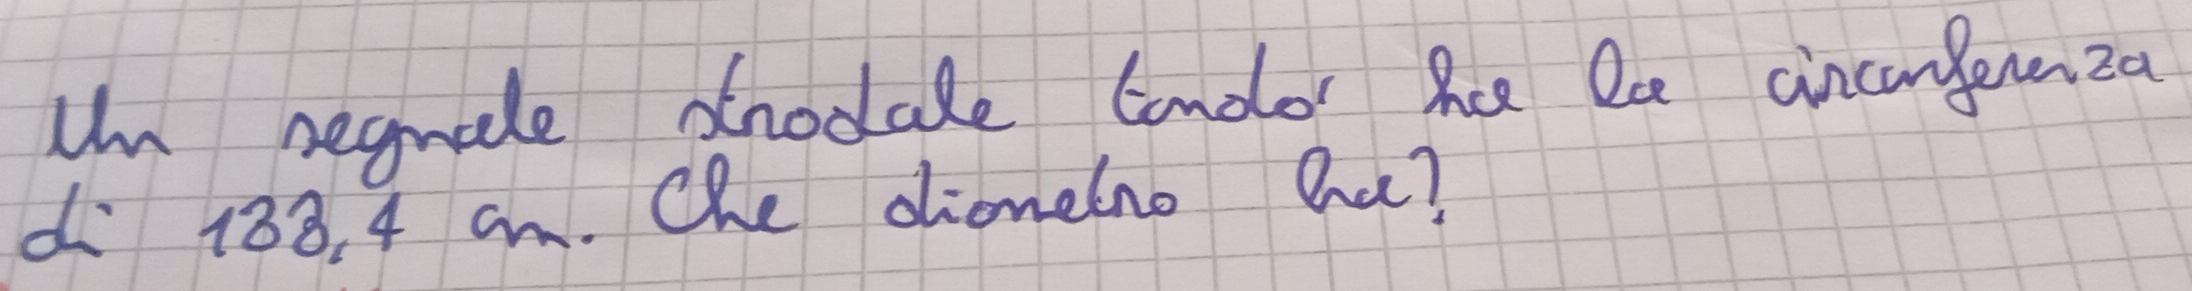 Un segnale stradale tondo ha la circonferenza
di 188,4 cm. Che diametro ha?